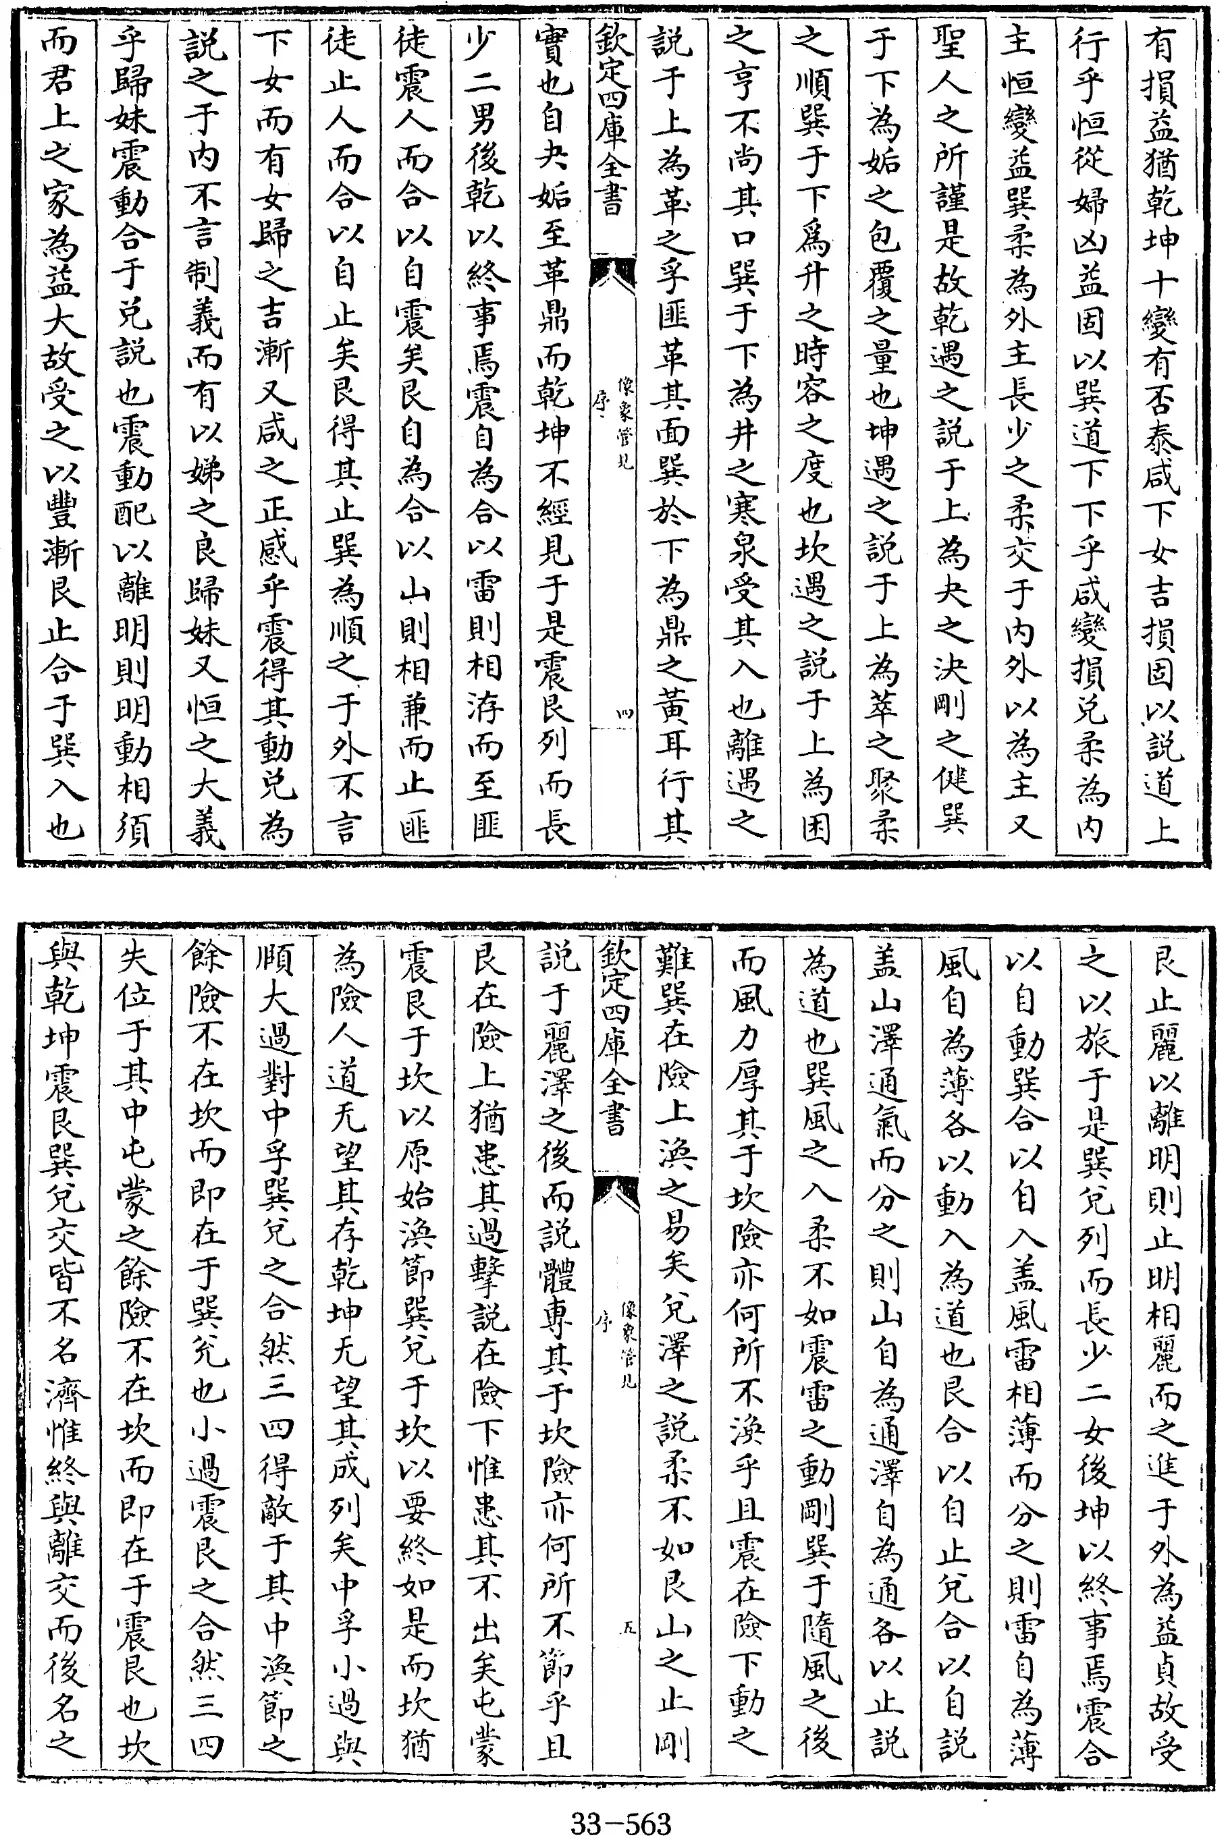 有損益猶乾坤十變有否泰咸下女吉損固以説道上
行乎恒從婦凶益固以巽道下下乎咸變損兑柔為内
主恒變益巽柔為外主長少之柔交于内外以為主又
聖人之所謹是故乾遇之説于上為夬之決剛之健巽
于下為姤之包覆之量也坤遇之説于上為萃之聚柔
之順巽于下爲升之時容之度也坎遇之説于上為困
之亨不尚其口巽于下為井之寒泉受其入也離遇之
説于上為革之孚匪革其面巽於下為鼎之黄耳行其
欽定四庫全書
像象管見
序
四
實也自夬姤至革鼎而乾坤不經見于是震艮列而長
少二男後乾以終事焉震自為合以雷則相洊而至匪
徒震人而合以自震矣艮自為合以山則相兼而止匪
徒止人而合以自止矣艮得其止巽為順之于外不言
下女而有女歸之吉漸又咸之正感乎震得其動兑為
説之于内不言制義而有以娣之良歸妹又恒之大義
乎歸妹震動合于兑説也震動配以離明則明動相須
而君上之家為益大故受之以豐漸艮止合于巽入也
艮止麗以離明則止明相麗而之進于外為益貞故受
之以旅于是巽兑列而長少二女後坤以終事焉震合
以自動巽合以自入盖風雷相薄而分之則雷自為薄
風自為薄各以動入為道也艮合以自止兑合以自説
盖山澤通氣而分之則山自為通澤自為通各以止説
為道也巽風之入柔不如震雷之動剛巽于隨風之後
而風力厚其于坎險亦何所不渙乎且震在險下動之
難巽在險上渙之易矣兑澤之説柔不如艮山之止剛
欽定四庫全書
像象管見
序
五
説于麗澤之後而説體專其于坎險亦何所不節乎且
艮在險上猶患其過擊説在險下惟患其不出矣屯蒙
震艮于坎以原始渙節巽兑于坎以要終如是而坎猶
為險人道无望其存乾坤无望其成列矣中孚小過與
頤大過對中孚巽兑之合然三四得敵于其中渙節之
餘險不在坎而即在于巽兑也小過震艮之合然三四
失位于其中屯蒙之餘險不在坎而即在于震艮也坎
與乾坤震艮巽兑交皆不名濟惟終與離交而後名之
33-563